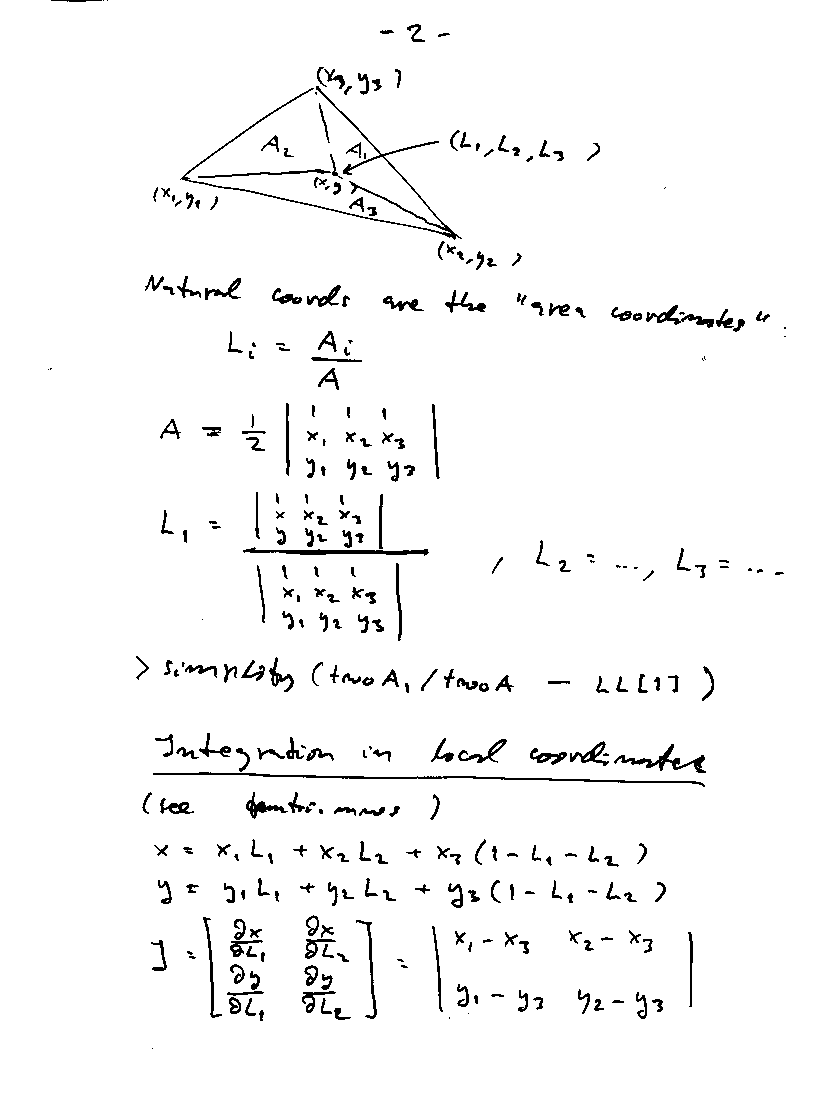 - 2 -
(x₃, y₃)
A₂ A₁ (L₁, L₂, L₃)
(x, y)
(x₁, y₁) A₃
(x₂, y₂)
Natural coords are the "area coordinates" :
Lᵢ = Aᵢ / A
A = 1/2 | 1 1 1
x₁ x₂ x₃
y₁ y₂ y₃ |
L₁ = | 1 1 1
x x₂ x₃
y y₂ y₃ |
/ | 1 1 1
x₁ x₂ x₃
y₁ y₂ y₃ | , L₂ = ..., L₃ = ...
> simplify (twoA₁ / twoA - LL[1])
Integration in local coordinates
(see )
x = x₁ L₁ + x₂ L₂ + x₃ (1 - L₁ - L₂)
y = y₁ L₁ + y₂ L₂ + y₃ (1 - L₁ - L₂)
J = [ ∂x/∂L₁ ∂x/∂L₂
∂y/∂L₁ ∂y/∂L₂ ] = | x₁ - x₃ x₂ - x₃
y₁ - y₃ y₂ - y₃ |